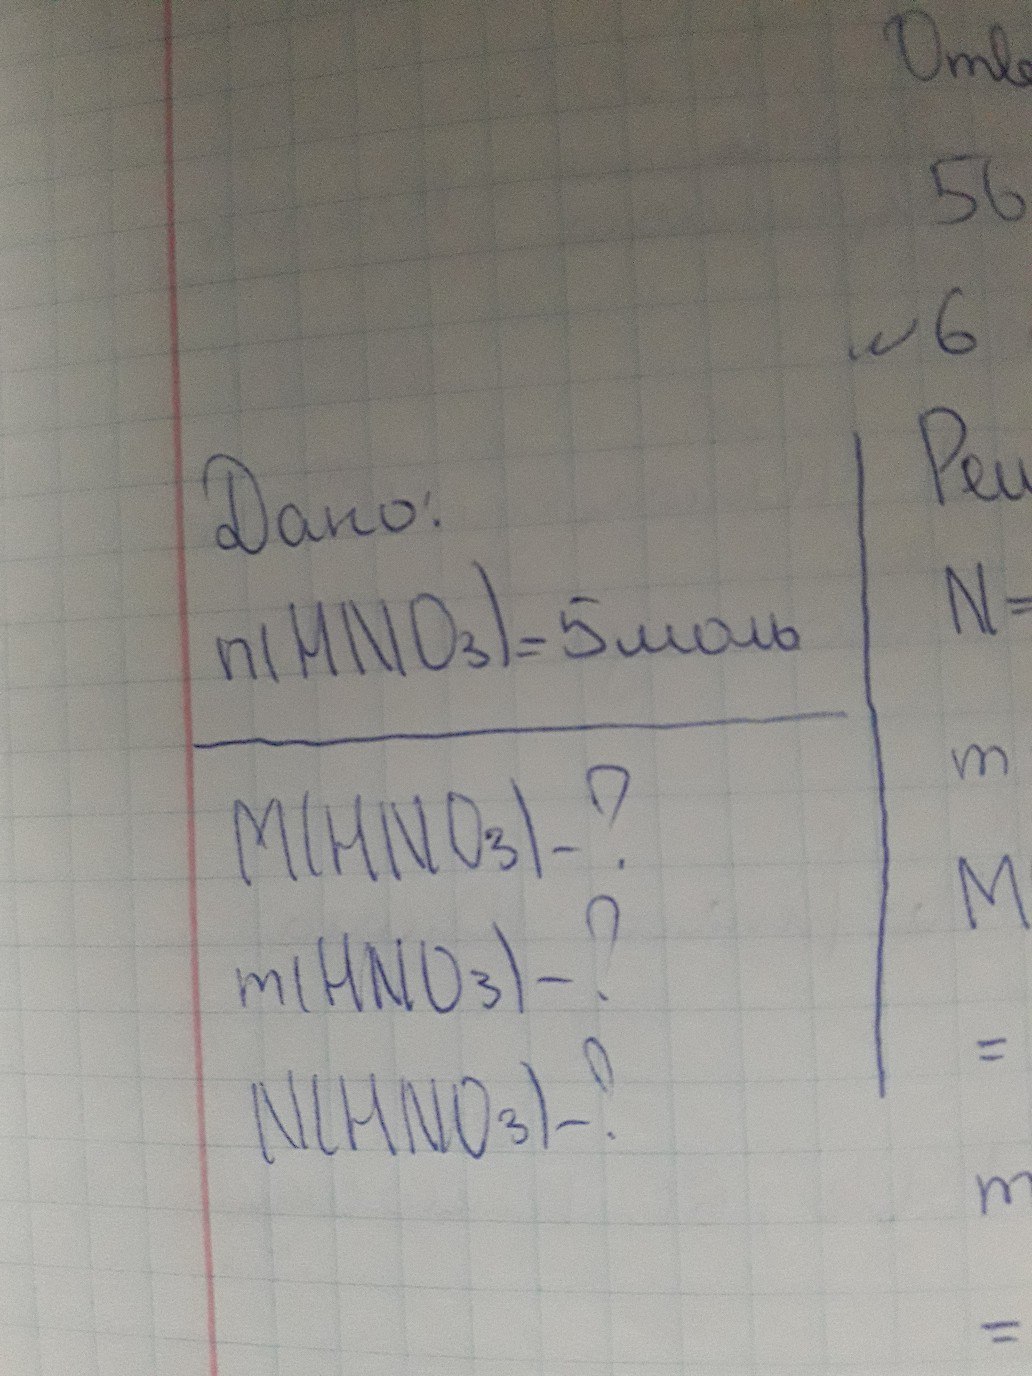 56
№6
Дано:
n(HNO3)=5моль
M(HNO3)-?
m(HNO3)-?
N(HNO3)-?
N=
m
M
=
m
=